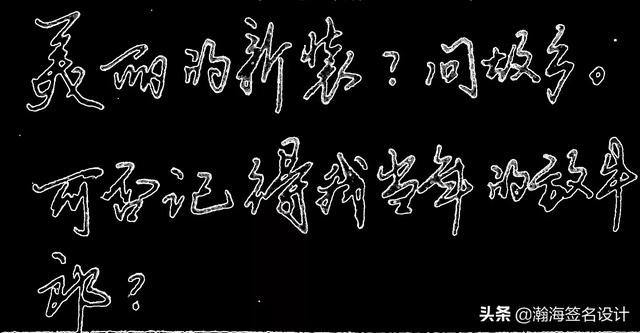 美丽的新装？问故乡。
可否记得我当年的放牛
郎？
头条 @瀚海签名设计